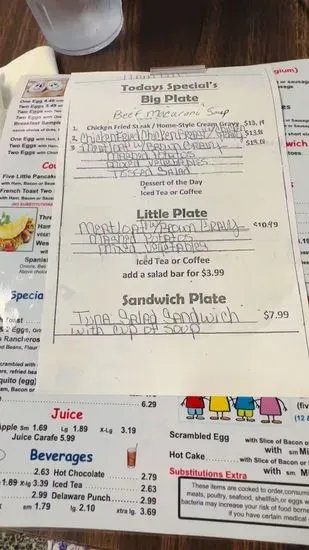 One Egg 4.49
Two Eggs 5.49
Two Eggs
Two Eggs with
Breakfast Sampl
One Egg with Ham,
Two Eggs with
Two Eggs with
Five Little Pancak
with Ham, Bacon or
French Toast Two
with Ham, Bacon or
(NO SUBSTITUTIONS
Thre
Ham
West
with
Spanis
Onions, Bell
Above choice
Specia
Toast
& 2 Eggs,
Rancheros
Beans, Flour
crambled with
refried bea
quito (egg)
am, Bacon or
Todays Special's
Big Plate
Beef Macaroni Soup
1. Chicken Fried Steak / Home-Style Cream Gravy $13.19
2. Chicken Fried Chicken
3. Meatloaf w/ Brown Gravy
Mashed Potatoes
Mixed Vegetables
Tossed Salad
Dessert of the Day
Iced Tea or Coffee
Little Plate
Meatloaf w/ Brown Gravy $10.99
Mashed Potatoes
Mixed Vegetables
Iced Tea or Coffee
add a salad bar for $3.99
Sandwich Plate
Tuna Salad Sandwich $7.99
with cup of soup
6.29
Juice
Apple Sm 1.69 Lg 1.89 X-Lg 3.19
Juice Carafe 5.99
Beverages
2.63 Hot Chocolate 2.79
1.89 X-lg 3.39 Iced Tea 2.63
2.99 Delaware Punch 2.99
sm 1.79 lg. 2.10 xtra lg. 3.69
Scrambled Egg with Slice of Bacon o
with sm Mi
Hot Cake with Slice of Bacon or
with sm Mi
Substitutions Extra
These items are cooked to order,consum
meats, poultry, seafood, shellfish,or eggs
bacteria may increase your risk of food borne
if you have certain medical